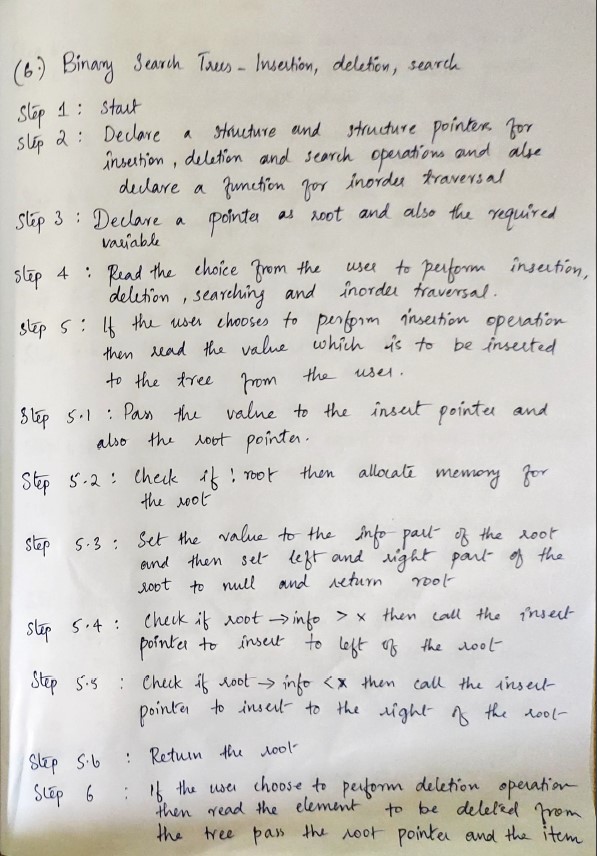 (6.) Binary Search Trees - Insertion, deletion, search
Step 1 : Start
Step 2 : Declare a structure and structure pointers for
insertion, deletion and search operations and also
declare a function for inorder traversal
Step 3 : Declare a pointer as root and also the required
variable
Step 4 : Read the choice from the user to perform insertion,
deletion, searching and inorder traversal.
Step 5 : If the user chooses to perform insertion operation
then read the value which is to be inserted
to the tree from the user.
Step 5.1 : Pass the value to the insert pointer and
also the root pointer.
Step 5.2 : Check if ! root then allocate memory for
the root
Step 5.3 : Set the value to the info part of the root
and then set left and right part of the
root to null and return root
Step 5.4 : Check if root → info > x then call the insert
pointer to insert to left of the root
Step 5.5 : Check if root → info < x then call the insert
pointer to insert to the right of the root
Step 5.6 : Return the root
Step 6 : If the user choose to perform deletion operation
then read the element to be deleted from
the tree pass the root pointer and the item